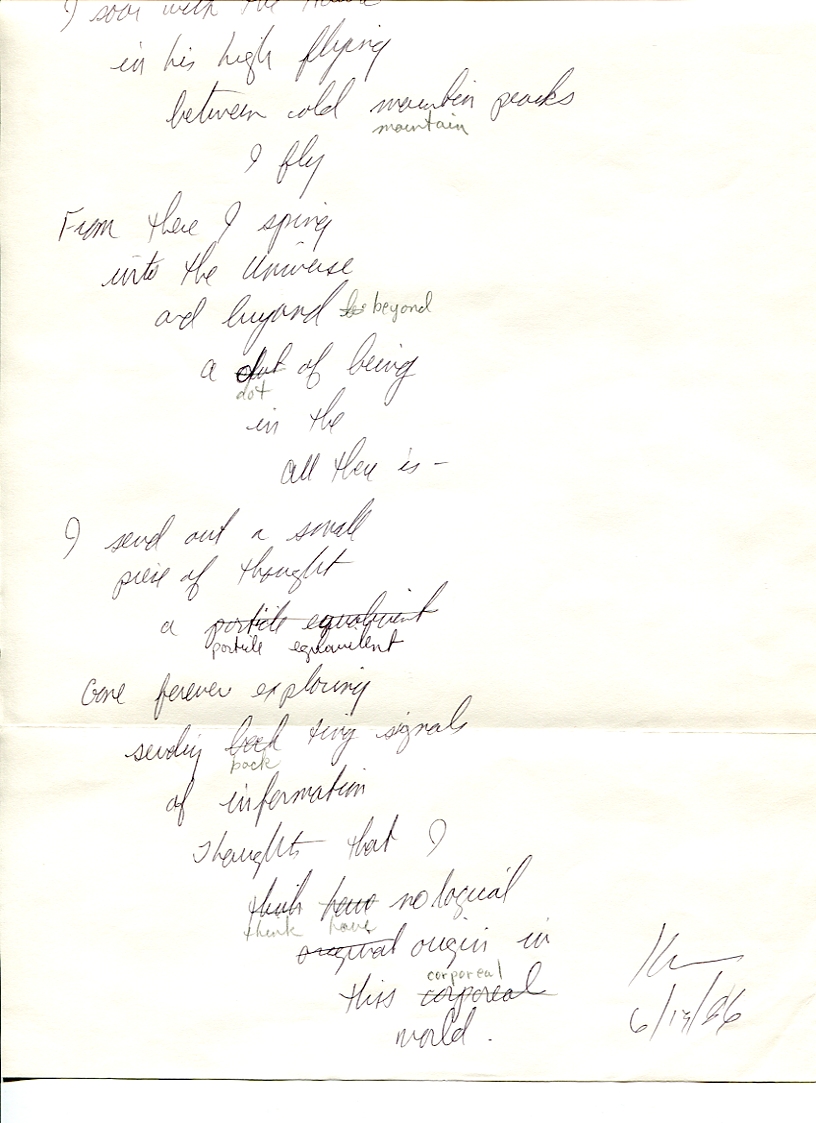 I soar with the
in his high flying
between cold mountin peaks
mountain
I fly
From there I spring
into the Universe
and beyond beyond
a dot of being
dot
in the
all there is -
I send out a small
piece of thought
a particle equivalent
particle equivilent
Gone forever exploring
sending back tiny signals
back
of information
Thoughts that I
think have no logical
think have
original origin in
corporeal
this corporeal
world.